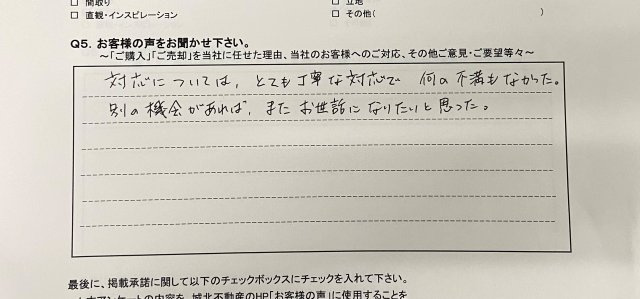 □ 間取り
□ 立地
□ 直観・インスピレーション
□ その他( )
Q5. お客様の声をお聞かせ下さい。
～「ご購入」「ご売却」を当社に任せた理由、当社のお客様へのご対応、その他ご意見・ご要望等々～
対応については、とても丁寧な対応で 何の不満もなかった。
別の機会があれば、またお世話になりたいと思った。
最後に、掲載承諾に関して以下のチェックボックスにチェックを入れて下さい。
本アンケートの内容を、城北不動産のHP「お客様の声」に使用することを